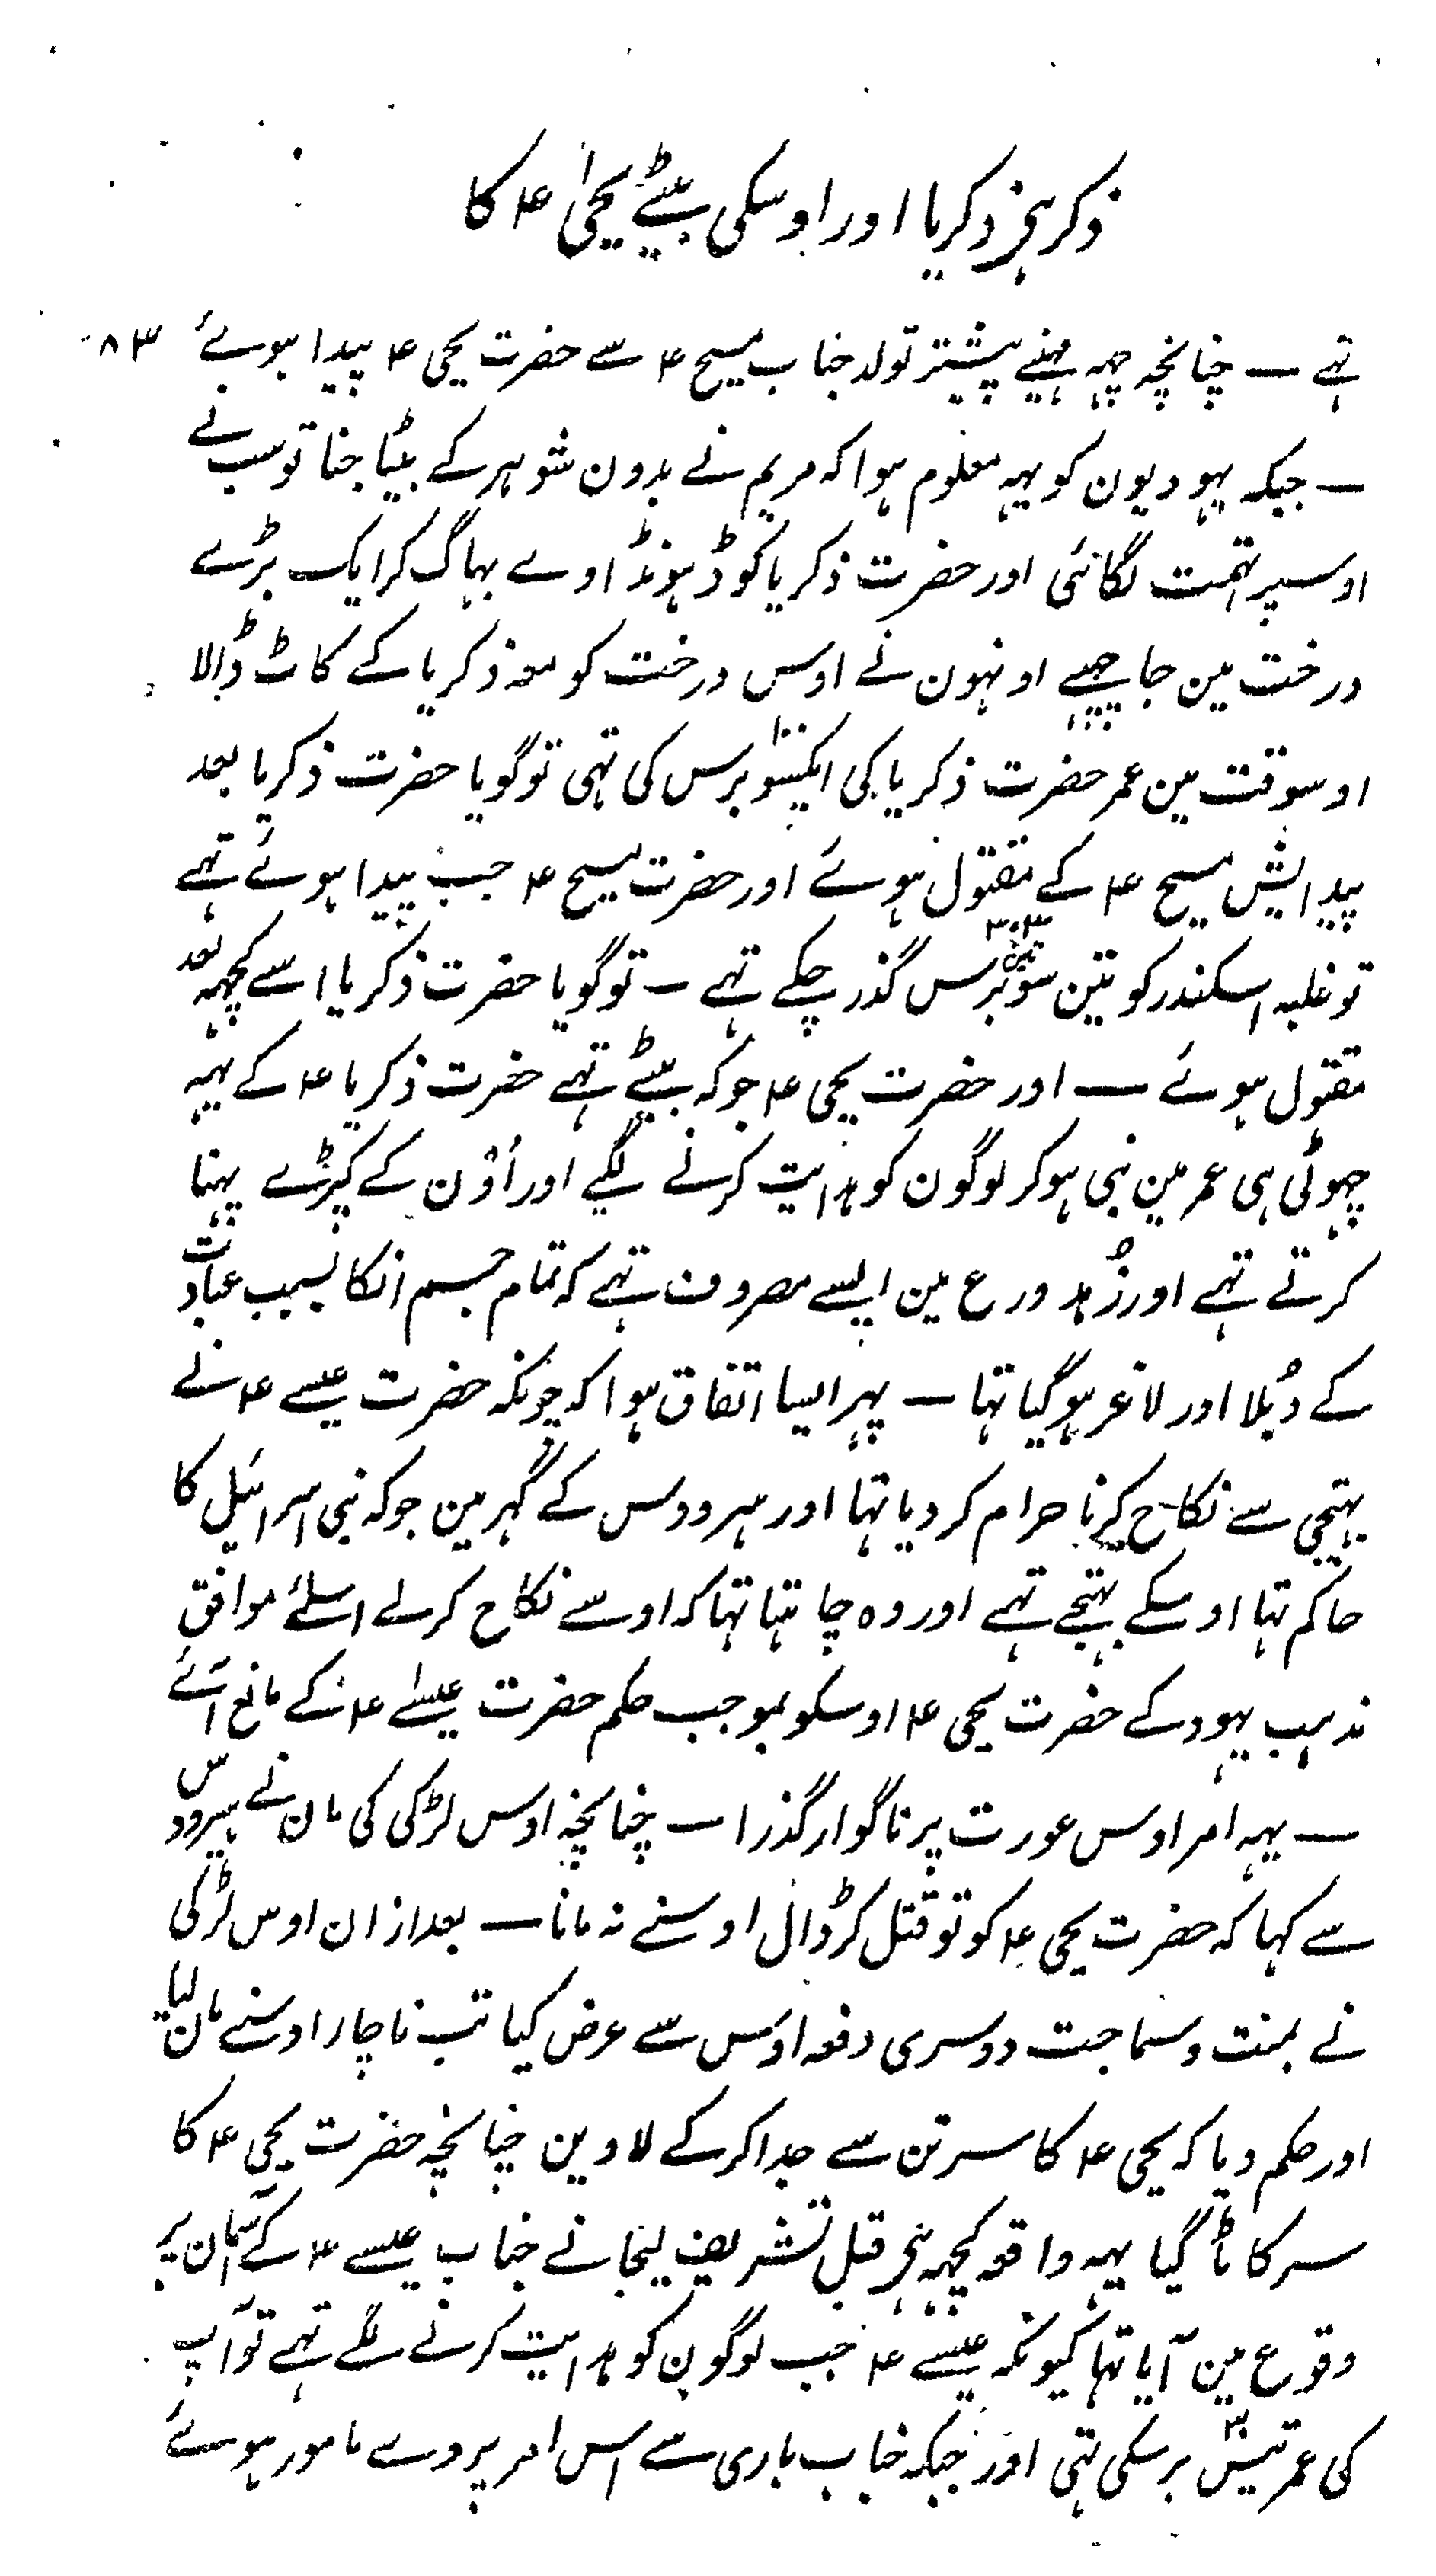 ذکر ذکریا اور اوسکی بیٹے یحیٰی ۴ کا
تہے ــ چنانچہ چہہ مہینے پیشتر تولد جناب مسیح ۴ سے حضرت یحیی ۴ پیدا ہوئے ۸۳
ــ جبکہ یہودیون کو یہہ معلوم ہوا کہ مریم نے بدون شوہر کے بیٹا جنا تو سب نے
اوسپر تہمت لگائی اور حضرت ذکریا کو ڈہونڈا وے بہاگ کر ایک بڑے
درخت مین جا چہپے اونہون نے اوس درخت کو معہ ذکریا کے کاٹ ڈالا
اوسوقت مین عمر حضرت ذکریا کی ایکسو ۱۰۰ برس کی تہی تو گویا حضرت ذکریا بعد
پیدایش مسیح ۴ کے مقتول ہوئے اور حضرت مسیح ۴ جب پیدا ہوئے تہے
تو غلبہ اسکندر کو تین سو تین ۳۰۳ برس گذر چکے تہے ــ تو گویا حضرت ذکریا اسے کچہہ بعد
مقتول ہوئے ــ اور حضرت یحیی ۴ جو کہ بیٹے تہے حضرت ذکریا ۴ کے یہہ
چہوٹی ہی عمر مین نبی ہو کر لوگون کو ہدایت کرنے لگے اور اُوْن کے کپڑے پہنا
کرتے تہے اور زُہد ورع مین ایسے مصروف تہے کہ تمام جسم انکا بسبب عبادت
کے دُبلا اور لاغر ہو گیا تہا ــ پہر ایسا اتفاق ہوا کہ چونکہ حضرت عیسے ۴ نے
بہتیجی سے نکاح کرنا حرام کر دیا تہا اور ہرودس کے گہر مین جو کہ بنی اسرائیل کا
حاکم تہا اوسکے بہتیجے تہے اور وہ چاہتا تہا کہ اوسے نکاح کر لے اسلئے موافق
مذہب یہود کے حضرت یحیی ۴ اوسکو بموجب حکم حضرت عیسےٰ ۴ کے مانع آئے
ــ یہہ امر اوس عورت پر ناگوار گذرا ــ چنانچہ اوس لڑکی کی مان نے ہیرودس
سے کہا کہ حضرت یحیی ۴ کو تو قتل کر ڈال اوسنے نہ مانا ــ بعد ازان اوس لڑکی
نے بمنت و سماجت دوسری دفعہ اوس سے عرض کیا تب ناچار اوسنے مان لیا
اور حکم دیا کہ یحیی ۴ کا سر تن سے جدا کر کے لاوین چنانچہ حضرت یحیی ۴ کا
سر کاٹا گیا یہہ واقعہ کچہہ قبل تشریف لیجانے جناب عیسے ۴ کے آسمان پر
وقوع مین آیا تہا کیونکہ عیسے ۴ جب لوگون کو ہدایت کرنے لگے تہے تو آپ
کی عمر تیس ۳۰ برسکی تہی اور جبکہ جناب باری سے اس امر پر وے مامور ہوئے